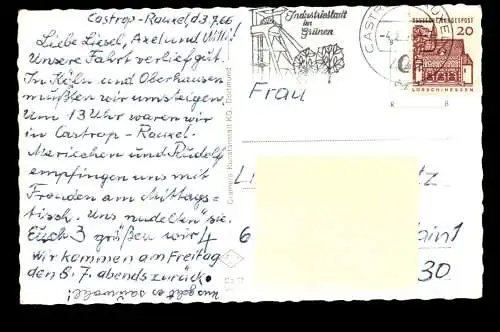 Castrop-Rauxel, d. 3.7.66
Liebe Liesel, Axel und Willi!
Unsere Fahrt verlief gut.
In Köln und Oberhausen
mußten wir umsteigen.
Um 13 Uhr waren wir
in Castrop-Rauxel.
Mariechen und Rudolf
empfingen uns mit
Freuden am Mittags-
tisch. Uns "nudelten" sie.
Euch 3 grüßen wir 4
Wir kommen am Freitag
den 8.7. abends zurück.
Uns geht es sauwohl!
Cramers Kunstanstalt KG. Dortmund
Industriestadt
im
Grünen
CASTR
DEUTSCHE BUNDESPOST
20
LORSCH/HESSEN
Frau
L tz
6 ain 1
30